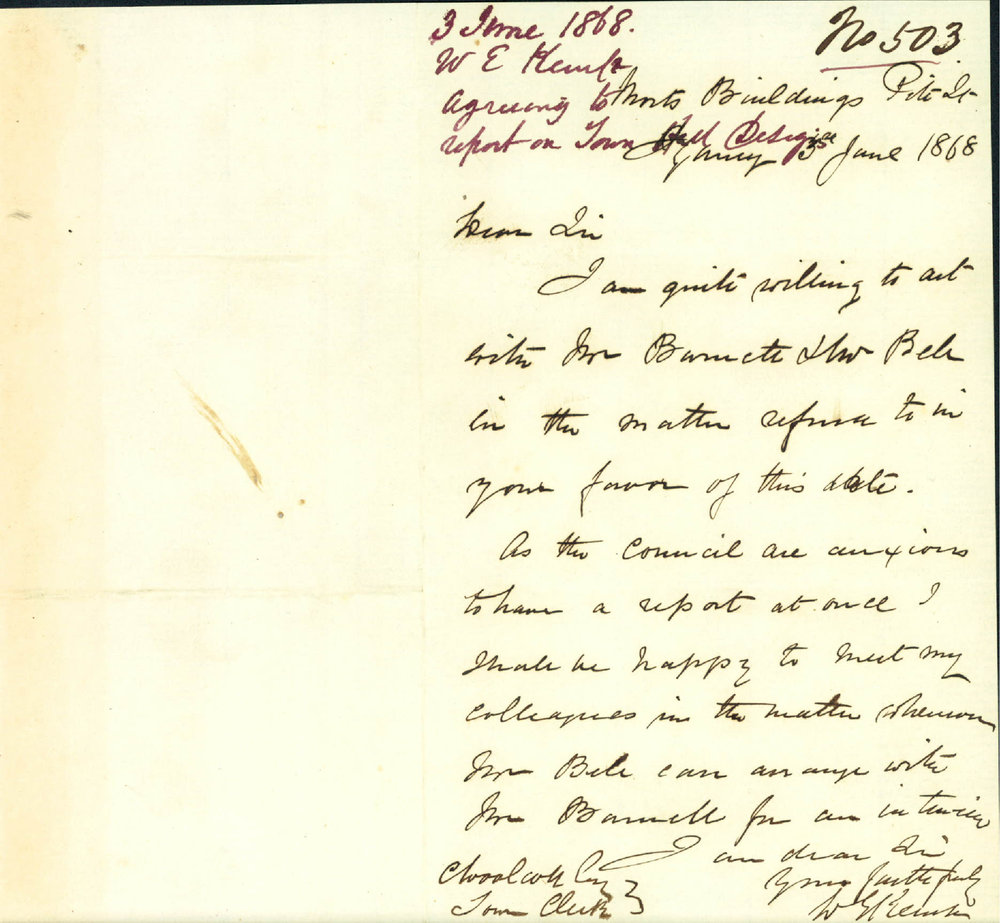 3 June 1868.
W E Kemp
agreeing to
report on Town Hall Designs
No 503
Morts Buildings Pitt St
Sydney 3d June 1868
Dear Sir
I am quite willing to act
with Mr Barnett & Mr Bell
in the matter referred to in
your favor of this date.
As the Council are anxious
to have a report at once I
shall be happy to meet my
colleagues in the matter whenever
Mr Bell can arrange with
Mr Barnett for an interview
I am dear Sir
Yours faithfully
W E Kemp
C Woolcott Esq
Town Clerk